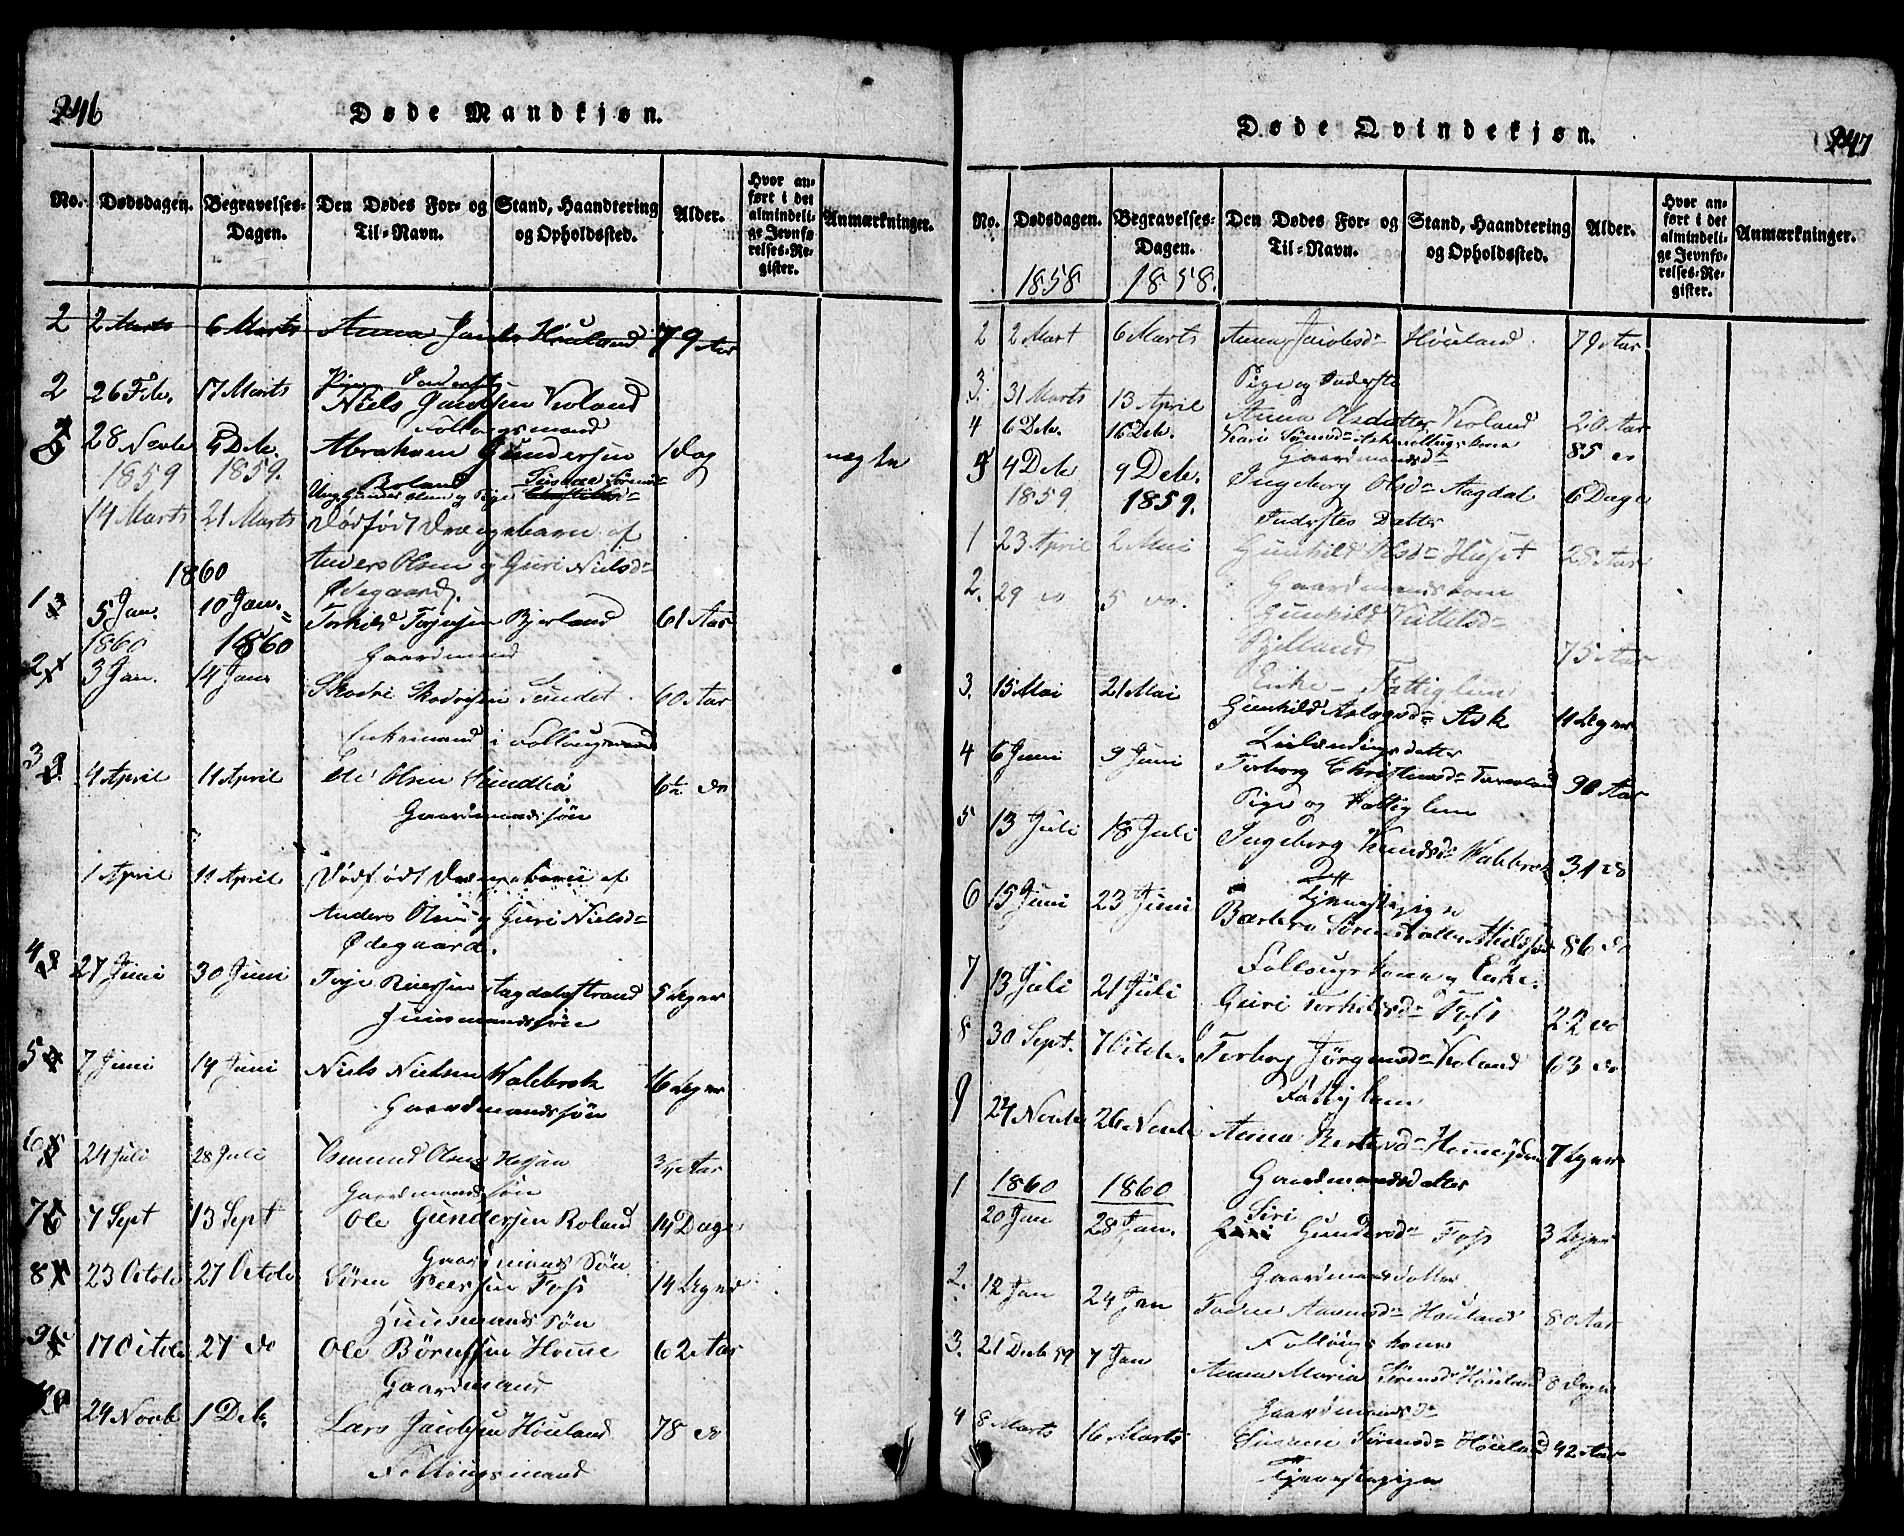 246
Døde Mandkjøn.
No. Dødsdagen. Begravelses-Dagen. Den Dødes For- og Til-Navn. Stand, Haandtering og Opholdssted. Alder. Hvor anført i det almindelige Jevnførelses-Register. Anmærkninger.
2 2 Marts 6 Marts Anna Jacobs Houland 79 Aar
2 26 Feb. 17 Marts Niels Jacobsen Veoland
Follougsmand
28 Novbr 5 Decbr. Abraham Gundersen 1 Dag
1859 1859. Roland
14 Marts 21 Marts Dødfødt Drængebarn af
Anders Olsen og Guri Nielsd=
1860 Ødegaard.
1 5 Jan. 10 Jan. Torkild Bjerland 61 Aar
1860 1860 Gaardmand
2 3 Jan. 14 Jan Sundet 60 Aar
Enkemand i Follougsmand
3 4 April 11 April Ole Olsen 6 1/2 do
Gaardmandssøn
1 April 11 April Dødfødt Drængebarn af
Anders Olsen og Guri Nielsd=
Ødegaard.
4 27 Juni 30 Juni Terje Reiersen Aagdalsstrand 5 Uger
Huusmandssøn
5 7 Juni 14 Juni Niels Nielsen Walebrok 16 Uger
Gaardmandssøn
6 24 Juli 28 Juli Osmund Olsen 3/4 Aar
Gaardmandssøn
7 7 Sept 13 Sept Ole Gundersen Roland 14 Dage
Gaardmands Søn
8 23 Octob 27 Octob Søren Peersen Foss 14 Uger
Huusmands Søn
9 17 Octob 27 do Ole Børufsen Homme 62 Aar
Gaardmand
24 Novb 1 Deb. Lars Jacobsen Houland 78 do
Follougsmand
247
Døde Qvindekjøn.
No. Dødsdagen. Begravelses-Dagen. Den Dødes For- og Til-Navn. Stand, Haandtering og Opholdssted. Alder. Hvor anført i det almindelige Jevnførelses-Register. Anmærkninger.
1858 1858.
2 2 Mart 6 Marts Anna Jacobsd= Houland 79 Aar
Pige og Inderste
3. 31 Marts 13 April Anna Olsdatter Veoland 20 Aar
4 6 Deb. 16 Deb. Kari Sørensd= 85 do
Gaardmandsd=
5 4 Deb 9 Deb. Ingeborg Olsd= Aagdal 6 Dage
1859. 1859. Inderstes Datter
1 23 April 2 Mai Gunhild Olsd= Huset 28 Aar
Gaardmandskone
2. 29 do 5 do. Gunhild Kittelsd=
Bjelland 75 Aar
Enke - Fattiglem
3. 15 Mai 21 Mai Gunhild Aslagsd= Ask 11 Uger
4 6 Juni 9 Juni Torborg Christensd= 90 Aar
Pige og Fattiglem
5 13 Juli 18 Juli Ingeborg Knudsd= Walebrok 31 do
Tjenestepige
6 15 Juni 23 Juni Barbro Sørensdatter 86 do
Follougskone og Enke.
7 13 Juli 21 Juli Guri Torkildsd= Foss 22 do
8 30 Sept. 7 Octb. Torborg Jørgensd= Veoland 63 do
Fattiglem
9 24 Novb 26 Novb Anna 7 Uger
Gaardmandsdatter
1 1860 1860
Siri
20 Jan 28 Jan. Gundersd= Foss 3 Uger
Gaardmandsdatter
2. 12 Jan 24 Jan Todne Aanensd= Houland 80 Aar
Follougskone
3. 21 Decb 59 7 Jan Anna Maria Sørensd= Houland 8 Dage
Gaardmandsd=
4 8 Marts 16 Marts Susane Sørensd= Houeland 42 Aar
Tjenestepige